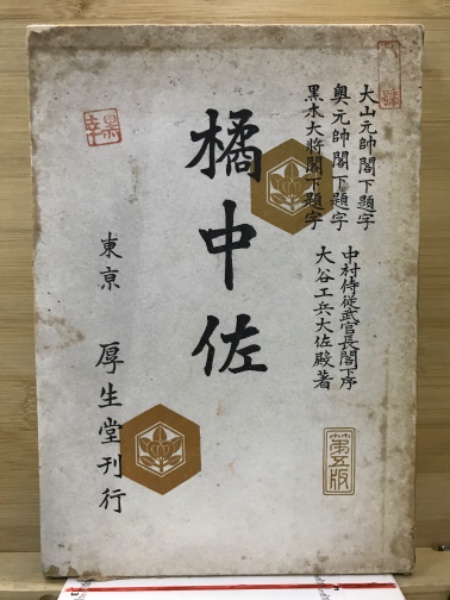 大山元帥閣下題字
奥元帥閣下題字
黒木大将閣下題字
中村侍従武官長閣下序
大谷工兵大佐殿著
橘中佐
第五版
東京
厚生堂刊行